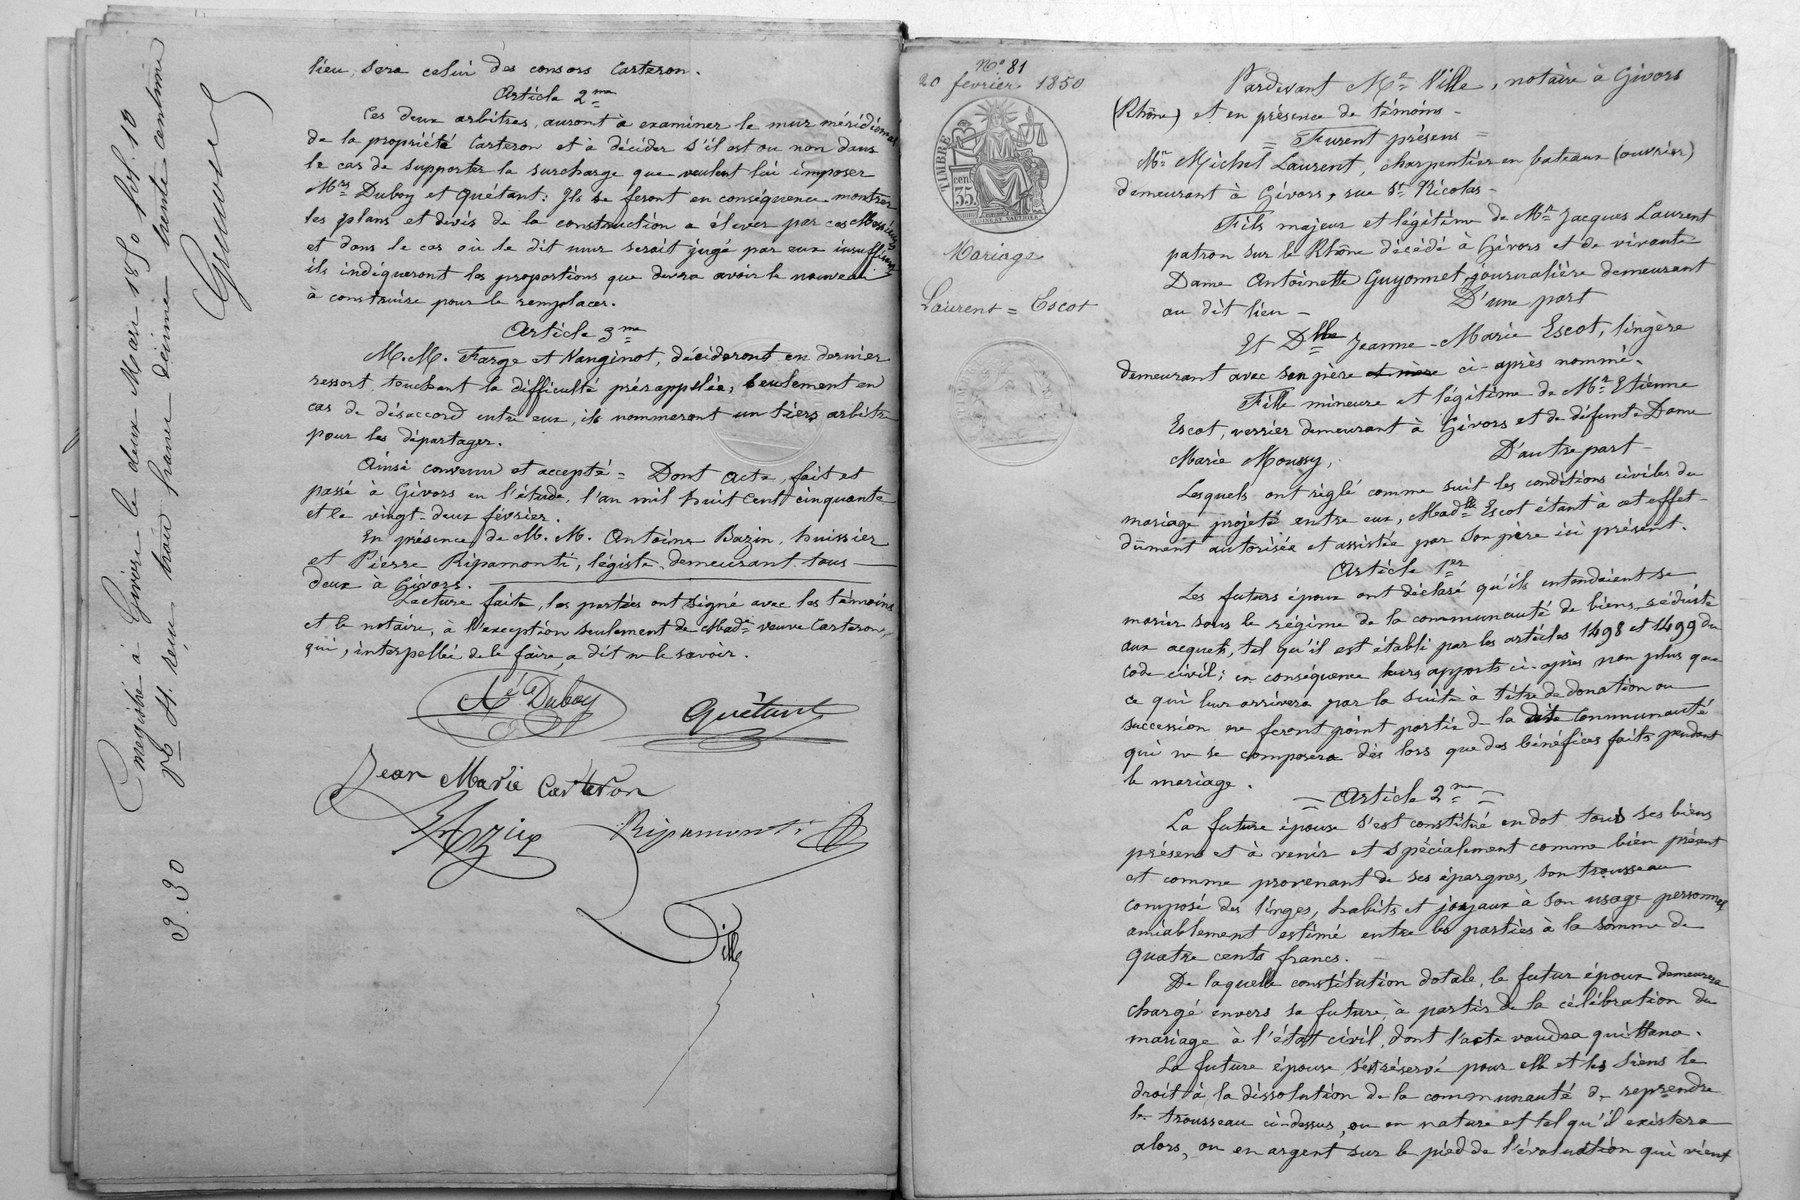 lieu, sera celui des consors Carteron.
Article 2me
Ces deux arbitres, auront à examiner le mur méridional
de la propriété Carteron et à décider s'il est ou non dans
le cas de supporter la surcharge que veulent lui imposer
Mrs Duboy et Quétant: Ils se feront en conséquence montrer
les plans et devis de la construction a élever par ces Messieurs
et dans le cas où le dit mur serait jugé par eux insuffisant
ils indiqueront les proportions que devra avoir le nouveau
à construire pour le remplacer.
Article 3me
M.M. Farge et Nanginot, décideront en dernier
ressort, touchant la difficulté prérappelée; seulement en
cas de désaccord entre eux, ils nommeront un tiers arbitre
pour les départager.
Ainsi convenu et accepté = Dont acte, fait et
passé à Givors en l'étude, l'an mil huit cent cinquante
et le vingt-deux février.
En présence de M.M. Antoine Bazin, huissier
et Pierre Ripamonti, légiste, demeurant tous
deux à Givors.
Lecture faite, les parties ont signé avec les témoins
et le notaire, à l'exception seulement de Made veuve Carteron,
qui, interpellée de le faire, a dit ne le savoir.
Duboy
Quétant
Jean Marie Carteron
Ripamonti
Ville
Enregistré à Givors le deux Mars 1850 fol. 18
reçu trois francs décime trente centimes
3.30
No 81
20 février 1850
TIMBRE
35 cent
Mariage
Laurent = Escot
Pardevant Me Ville, notaire à Givors
(Rhône) et en présence de témoins -
= Furent présens =
Mr Michel Laurent, charpentier en bateaux (ouvrier)
demeurant à Givors, rue St Nicolas -
Fils majeur et légitime de Mr Jacques Laurent
patron sur le Rhône décédé à Givors et de vivante
Dame Antoinette Guyonnet journalière demeurant
au dit lieu - D'une part
Et Dlle Jeanne-Marie Escot, lingère
demeurant avec son père et mère ci-après nommé.
Fille mineure et légitime de Mr Etienne
Escot, verrier demeurant à Givors et de défunte Dame
Marie Moussy, D'autre part -
Lesquels ont réglé comme suit les conditions civiles du
mariage projeté entre eux, Madlle Escot étant à cet effet -
dûment autorisée et assistée par son père ici présent.
Article 1er
Les futurs époux ont déclaré qu'ils entendaient se
marier sous le régime de la communauté de biens, réduite
aux acquets, tel qu'il est établi par les articles 1498 et 1499 du
code civil; en conséquence leurs apports ci-après non plus que
ce qui leur arrivera par la suite à titre de donation ou
succession ne feront point partie de la dite communauté
qui ne se composera dès lors que des bénéfices faits pendant
le mariage.
= Article 2me =
La future épouse s'est constitué en dot tous ses biens
présens et à venir et spécialement comme bien présent
et comme provenant de ses épargnes, son trousseau
composé des linges, habits et joyaux à son usage personnel
amiablement estimé entre les parties à la somme de
quatre cents francs.
De laquelle constitution dotale, le futur époux demeurera
chargé envers sa future, à partir de la célébration du
mariage à l'état civil, dont l'acte vaudra quittance.
La future épouse s'est réservé pour elle et les siens le
droit à la dissolution de la communauté de reprendre
le trousseau ci-dessus, ou en nature et tel qu'il existera
alors, ou en argent sur le pied de l'évaluation qui vient